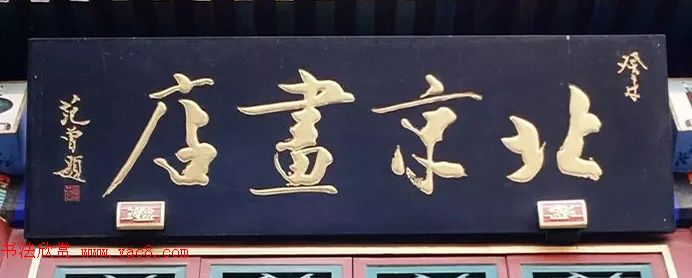 北京畫店
范曾題
书法欣赏 www.yac8.com